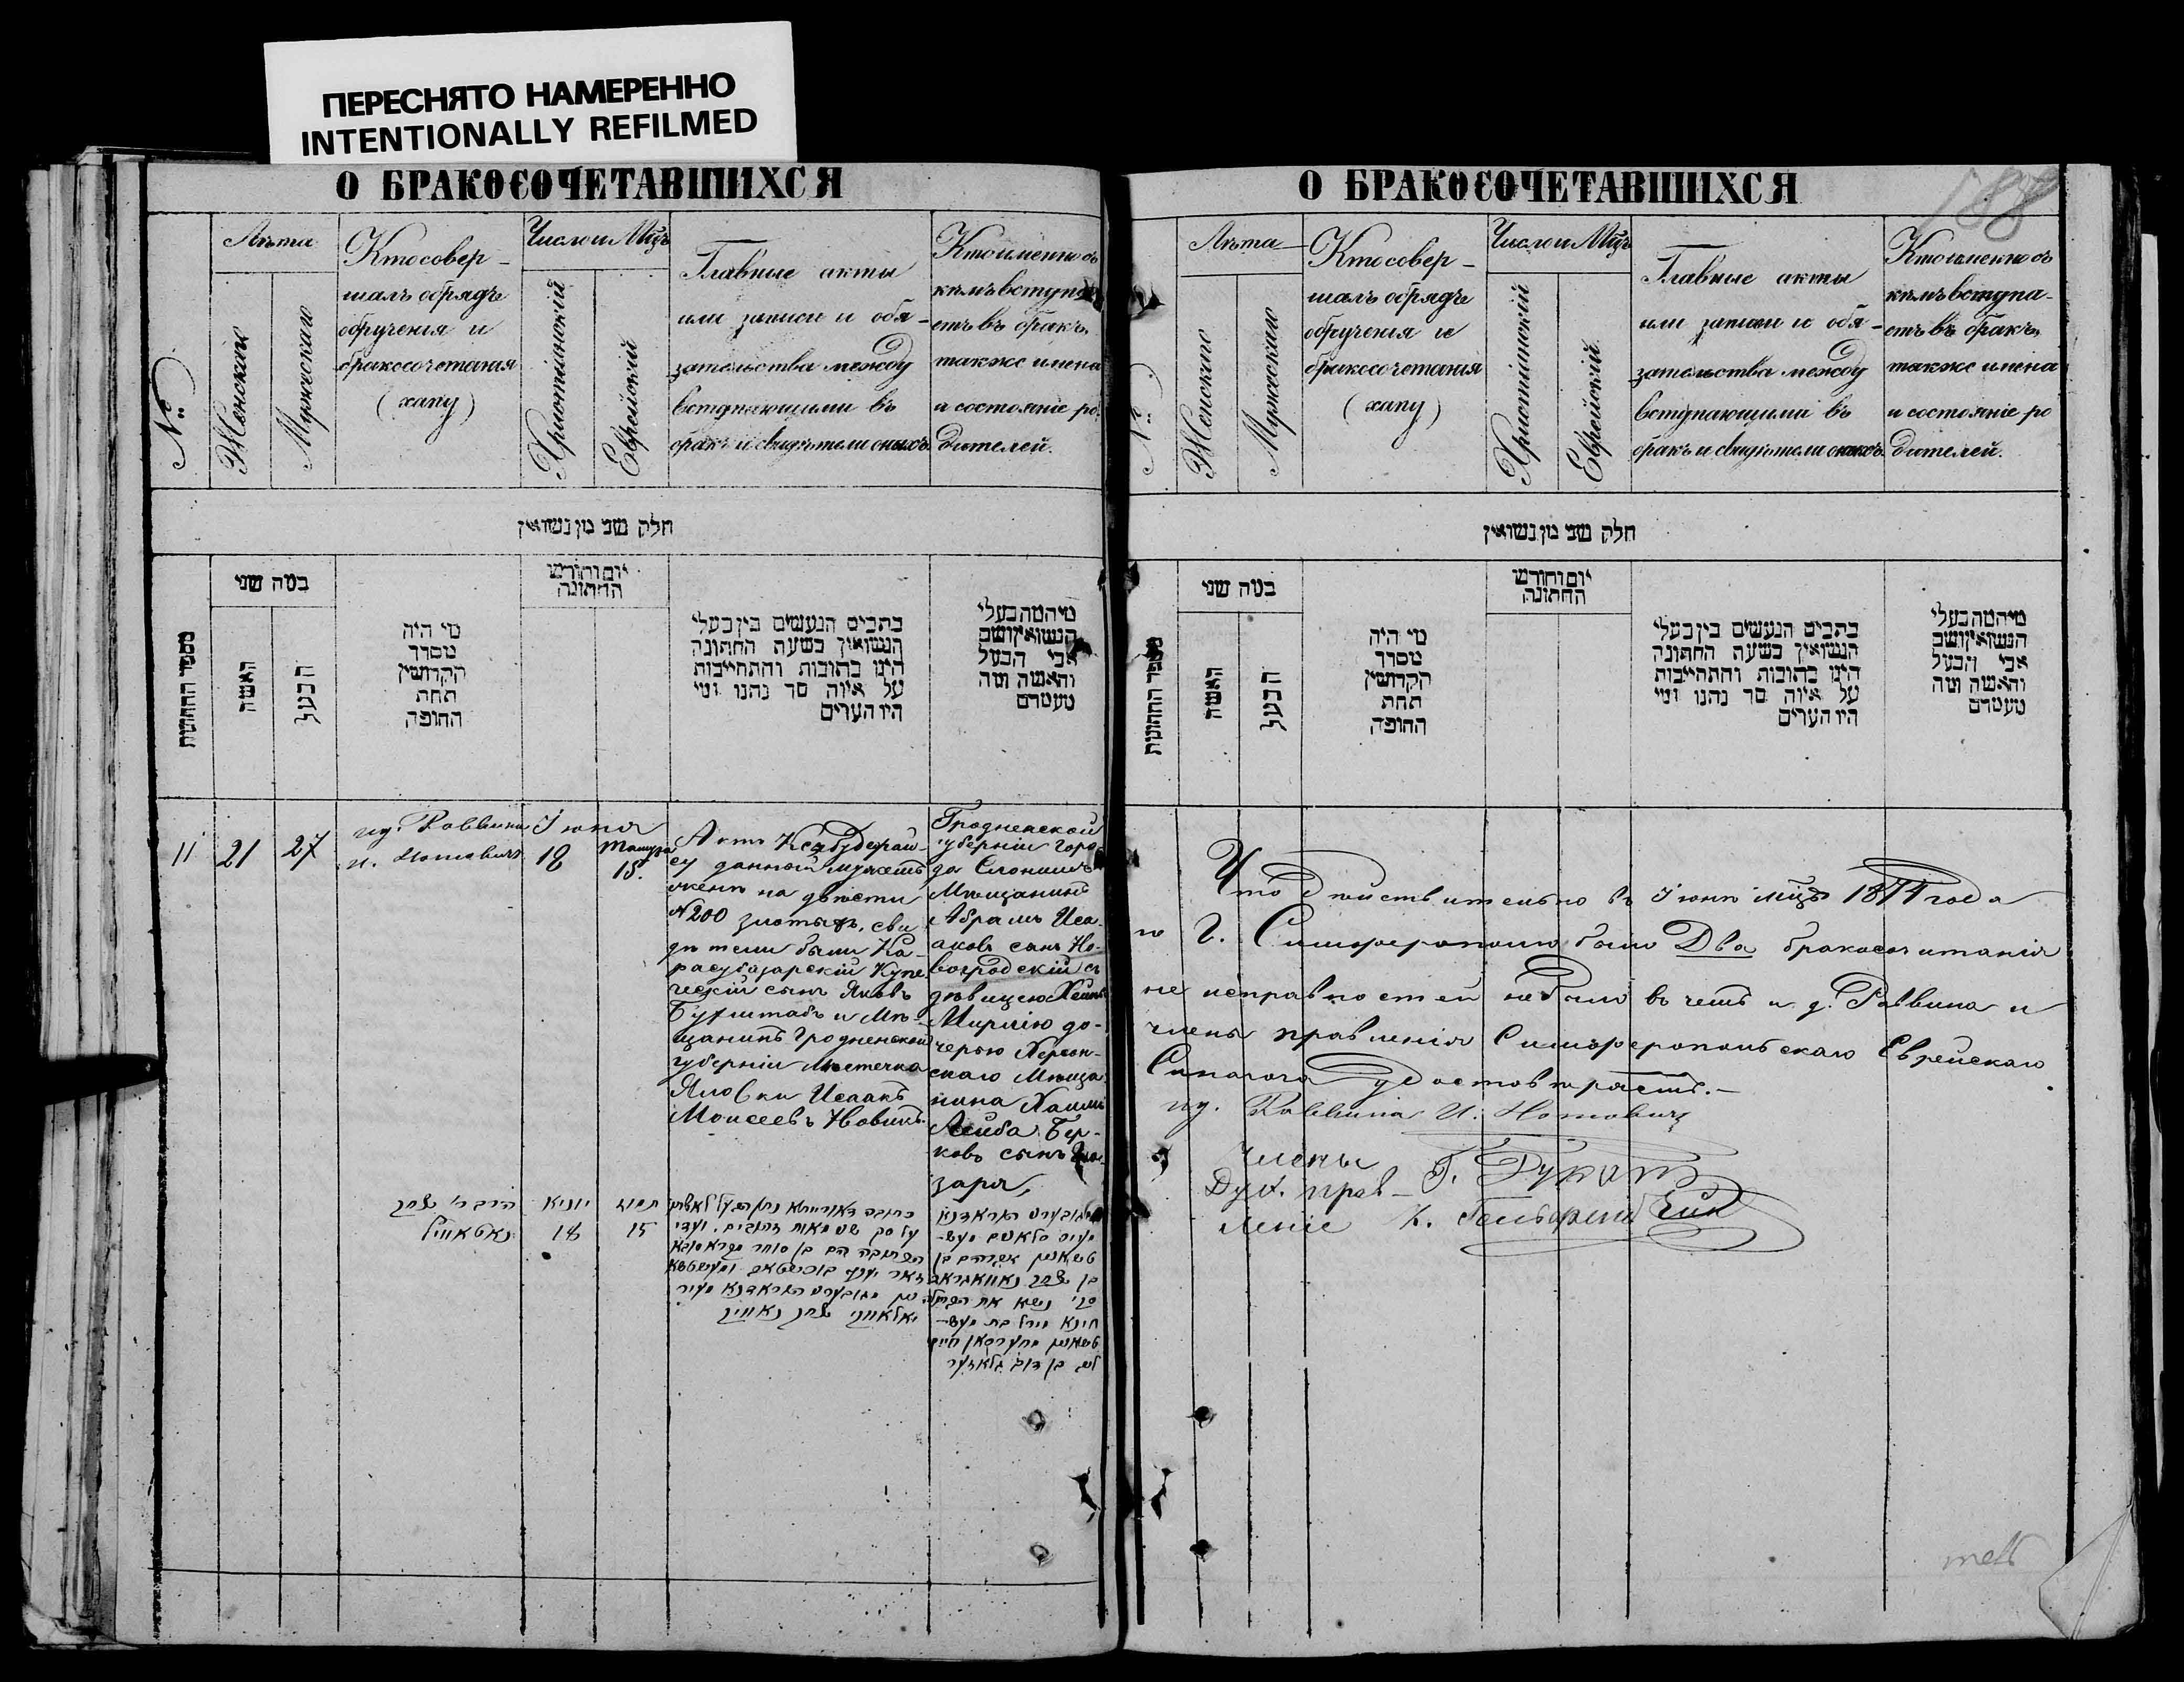 ПЕРЕСНЯТО НАМЕРЕННО
INTENTIONALLY REFILMED
О БРАКОСОЧЕТАВШИХСЯ
№
Лѣта
Женскаго
Мужескаго
Кто совер-
шалъ обрядъ
обрученія и
бракосочетанія
(хапу)
Число и Мцъ
Христіянскій
Еврейскій
Главные акты
или записи и обя-
зательства между
вступающими въ
бракъ и свидѣтели оныхъ
Кто именно съ
кѣмъ вступа
етъ въ бракъ,
также имена
и состояніе ро
дителей.
חלק שני מן נשואין
מספר החתונות
במה שני
האשה
הבעל
מי היה
מסדר
הקדושין
תחת
החופה
יום וחודש
החתונה
כתבים הנעשים בין בעלי
הנשואין בשעת החתונה
היינו כתובות והתחייבות
על איזה סך נתנו ומי
היו העדים
מי המה בעלי
הנשואין ושם
אבי הבעל
והאשה ומה
מעמדם
11
21
27
ид. Раввина
И. Нотовичъ
Іюня
18
Тамуза
15.
Актъ Ксубедерай-
су данный мужемъ
женѣ на двѣсти
№ 200 злотыхъ, сви
дѣтели были Ка-
расубазарскій Купе-
ческій сынъ Яковъ
Бухштабъ и Мѣ-
щанинъ Гродненской
губерніи Мѣстечка
Яловки Исаакъ
Моисеевъ Новикъ.
Гродненской
губерніи горо-
да Слонима
Мѣщанинъ
Абрамъ Иса
аковъ сынъ Но-
вогродскій съ
дѣвицею Хейне
Мирлію до-
черью Херсон-
скаго Мѣща
нина Хаимъ
Лейба Бер-
ковъ сынъ Гла-
заря,
הרב ר' יצחק
נאטאוויץ
יוניא
18
תמוז
15
О БРАКОСОЧЕТАВШИХСЯ
188
№
Лѣта
Женскаго
Мужескаго
Кто совер-
шалъ обрядъ
обрученія и
бракосочетанія
(хапу)
Число и Мцъ
Христіянскій
Еврейскій
Главные акты
или записи и обя-
зательства между
вступающими въ
бракъ и свидѣтели оныхъ.
Кто именно съ
кѣмъ вступа-
етъ въ бракъ,
также имена
и состояніе ро
дителей.
חלק שני מן נשואין
מספר החתונות
במה שני
האשה
הבעל
מי היה
מסדר
הקדושין
תחת
החופה
יום וחודש
החתונה
כתבים הנעשים בין בעלי
הנשואין בשעת החתונה
היינו כתובות והתחייבות
על איזה סך נתנו ומי
היו העדים
מי המה בעלי
הנשואין ושם
אבי הבעל
והאשה ומה
מעמדם
Что дѣйствительно въ Іюнѣ мцѣ 1874 года
по г. Симферополю было Два бракосочитанія
не исправностей небыло въ чемъ и д. Раввина и
члены правленія Симферопольскаго Еврейскаго
Синагога удостовѣряемъ.-
ид. Раввина И. Нотовичъ
Члены
Дух. прав-
леніе